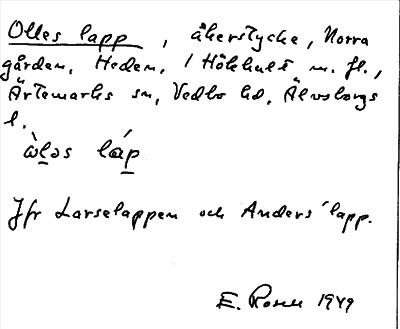 Olles lapp, åkerstycke, Norra
gården, Heden, i Hökhult m. fl.,
Ärtemarks sn, Vedbo hd, Älvsborgs
l.
ẁləs láp
Jfr Larselappen och Anders' lapp.
E. Rosell 1949